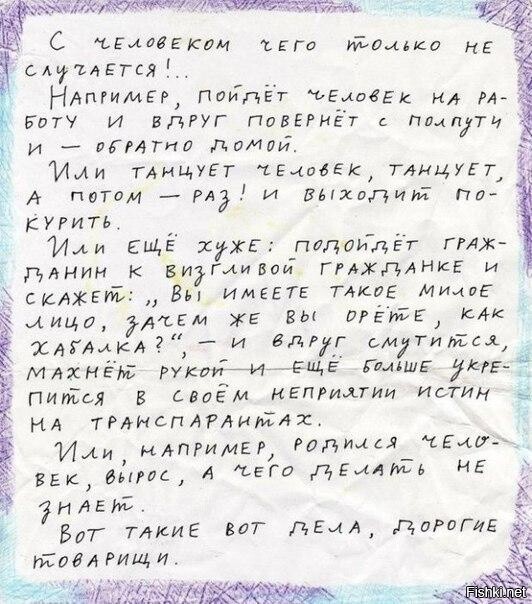 С человеком чего только не
случается!..
Например, пойдёт человек на ра-
боту и вдруг повернёт с полпути
и – обратно домой.
Или танцует человек, танцует,
а потом – раз! и выходит по-
курить.
Или ещё хуже: подойдёт граж-
данин к визгливой гражданке и
скажет: „Вы имеете такое милое
лицо, зачем же вы орёте, как
хабалка?“, – и вдруг смутится,
махнёт рукой и ещё больше укре-
пится в своём неприятии истин
на транспарантах.
Или, например, родился чело-
век, вырос, а чего делать не
знает.
Вот такие вот дела, дорогие
товарищи.
Fishki.net